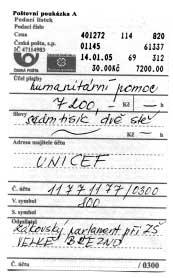 Poštovní poukázka A
Podací lístek
Podací číslo
Cena 401272 114 820
Česká pošta, s.p. 01145 61337
IČ 47114983 14.01.05 69 312
ČESKÁ POŠTA 30.00Kč 7200.00
Účel platby
humanitární pomoc
7 200,- Kč h
Slovy Kč h
sedmtisíc dvě stě
Adresa majitele účtu
UNICEF
Č. účtu 1177 1177/0300
V. symbol 800
S. symbol
Odesílatel
žákovský parlament při ZŠ
VELKÉ BŘEZNO
Č. účtu / 0300